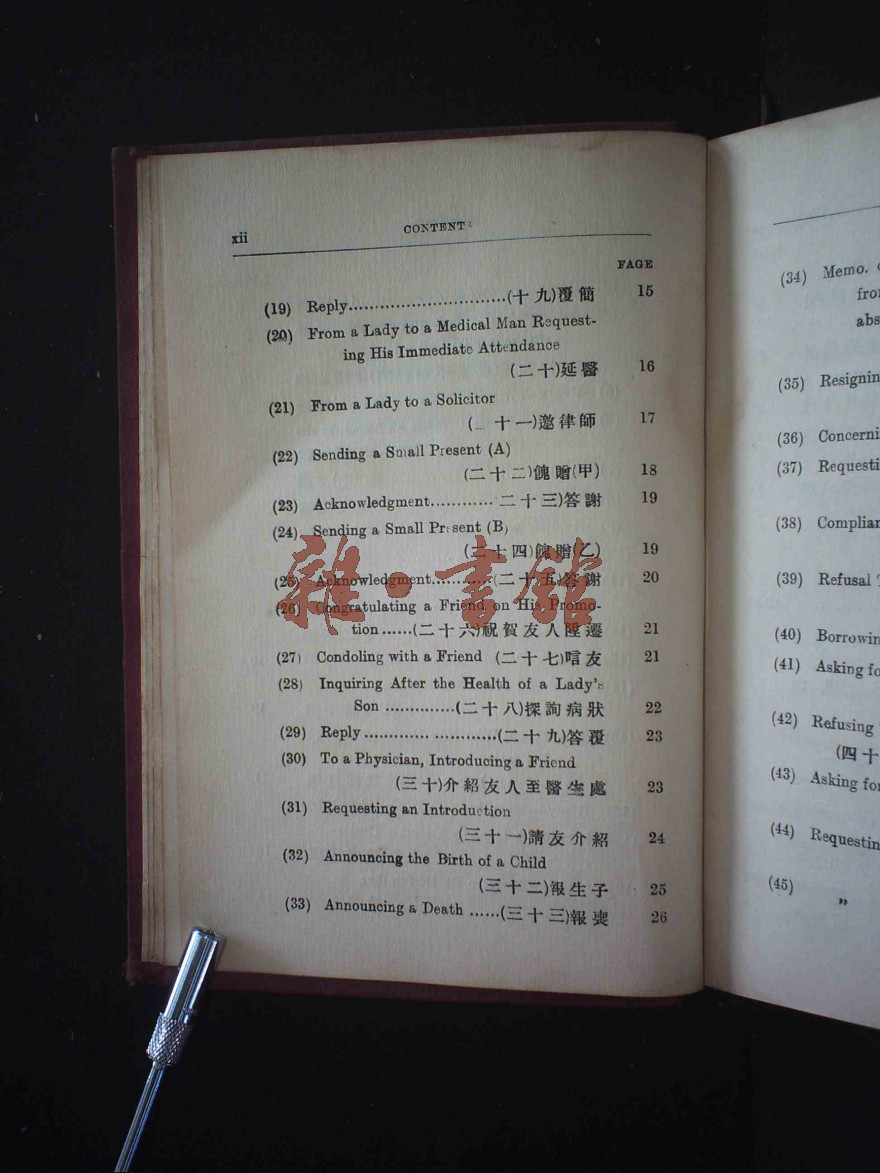 xii
CONTENT
PAGE
(19) Reply..............................(十九)覆簡 15
(20) From a Lady to a Medical Man Request-
ing His Immediate Attendance
(二十)延醫 16
(21) From a Lady to a Solicitor
(二十一)邀律師 17
(22) Sending a Small Present (A)
(二十二)餽贈(甲) 18
(23) Acknowledgment............二十三)答謝 19
(24) Sending a Small Present (B)
(二十四)餽贈(乙) 19
(25) Acknowledgment............(二十五)答謝 20
(26) Congratulating a Friend on His Promo-
tion......(二十六)祝賀友人陞遷 21
(27) Condoling with a Friend (二十七)唁友 21
(28) Inquiring After the Health of a Lady's
Son ..............(二十八)探詢病狀 22
(29) Reply............. .............(二十九)答覆 23
(30) To a Physician, Introducing a Friend
(三十)介紹友人至醫生處 23
(31) Requesting an Introduction
(三十一)請友介紹 24
(32) Announcing the Birth of a Child
(三十二)報生子 25
(33) Announcing a Death ......(三十三)報喪 26
雜·書館
(34) Memo.
(35)
(36)
(37)
(38)
(39) Refusal
(40)
(41) Asking
(42) Refusing
(四十
(43) Asking
(44)
(45) „